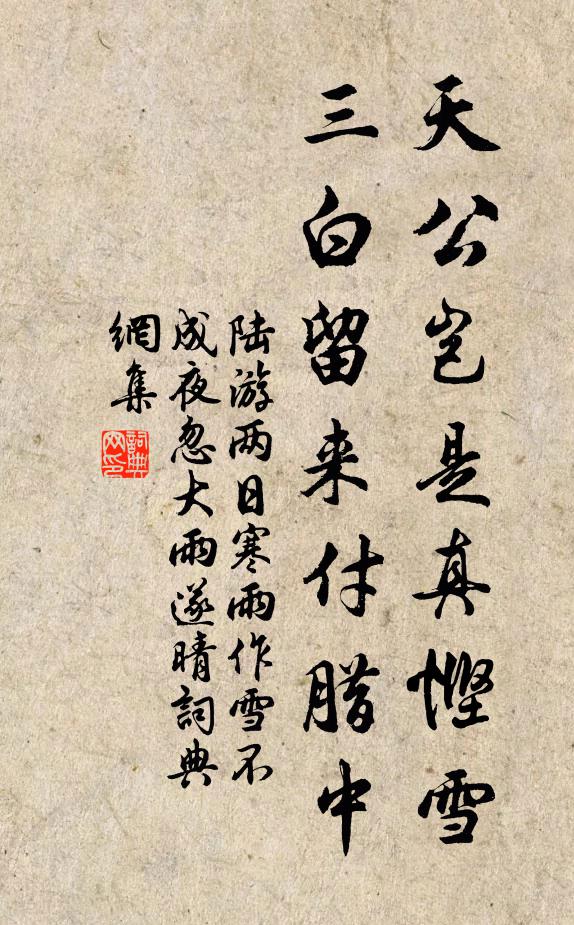 天公岂是真慳雪
三白留来付腊中
陆游两日寒雨作雪不
成夜忽大雨遂晴詞典
網集
詞典
网印